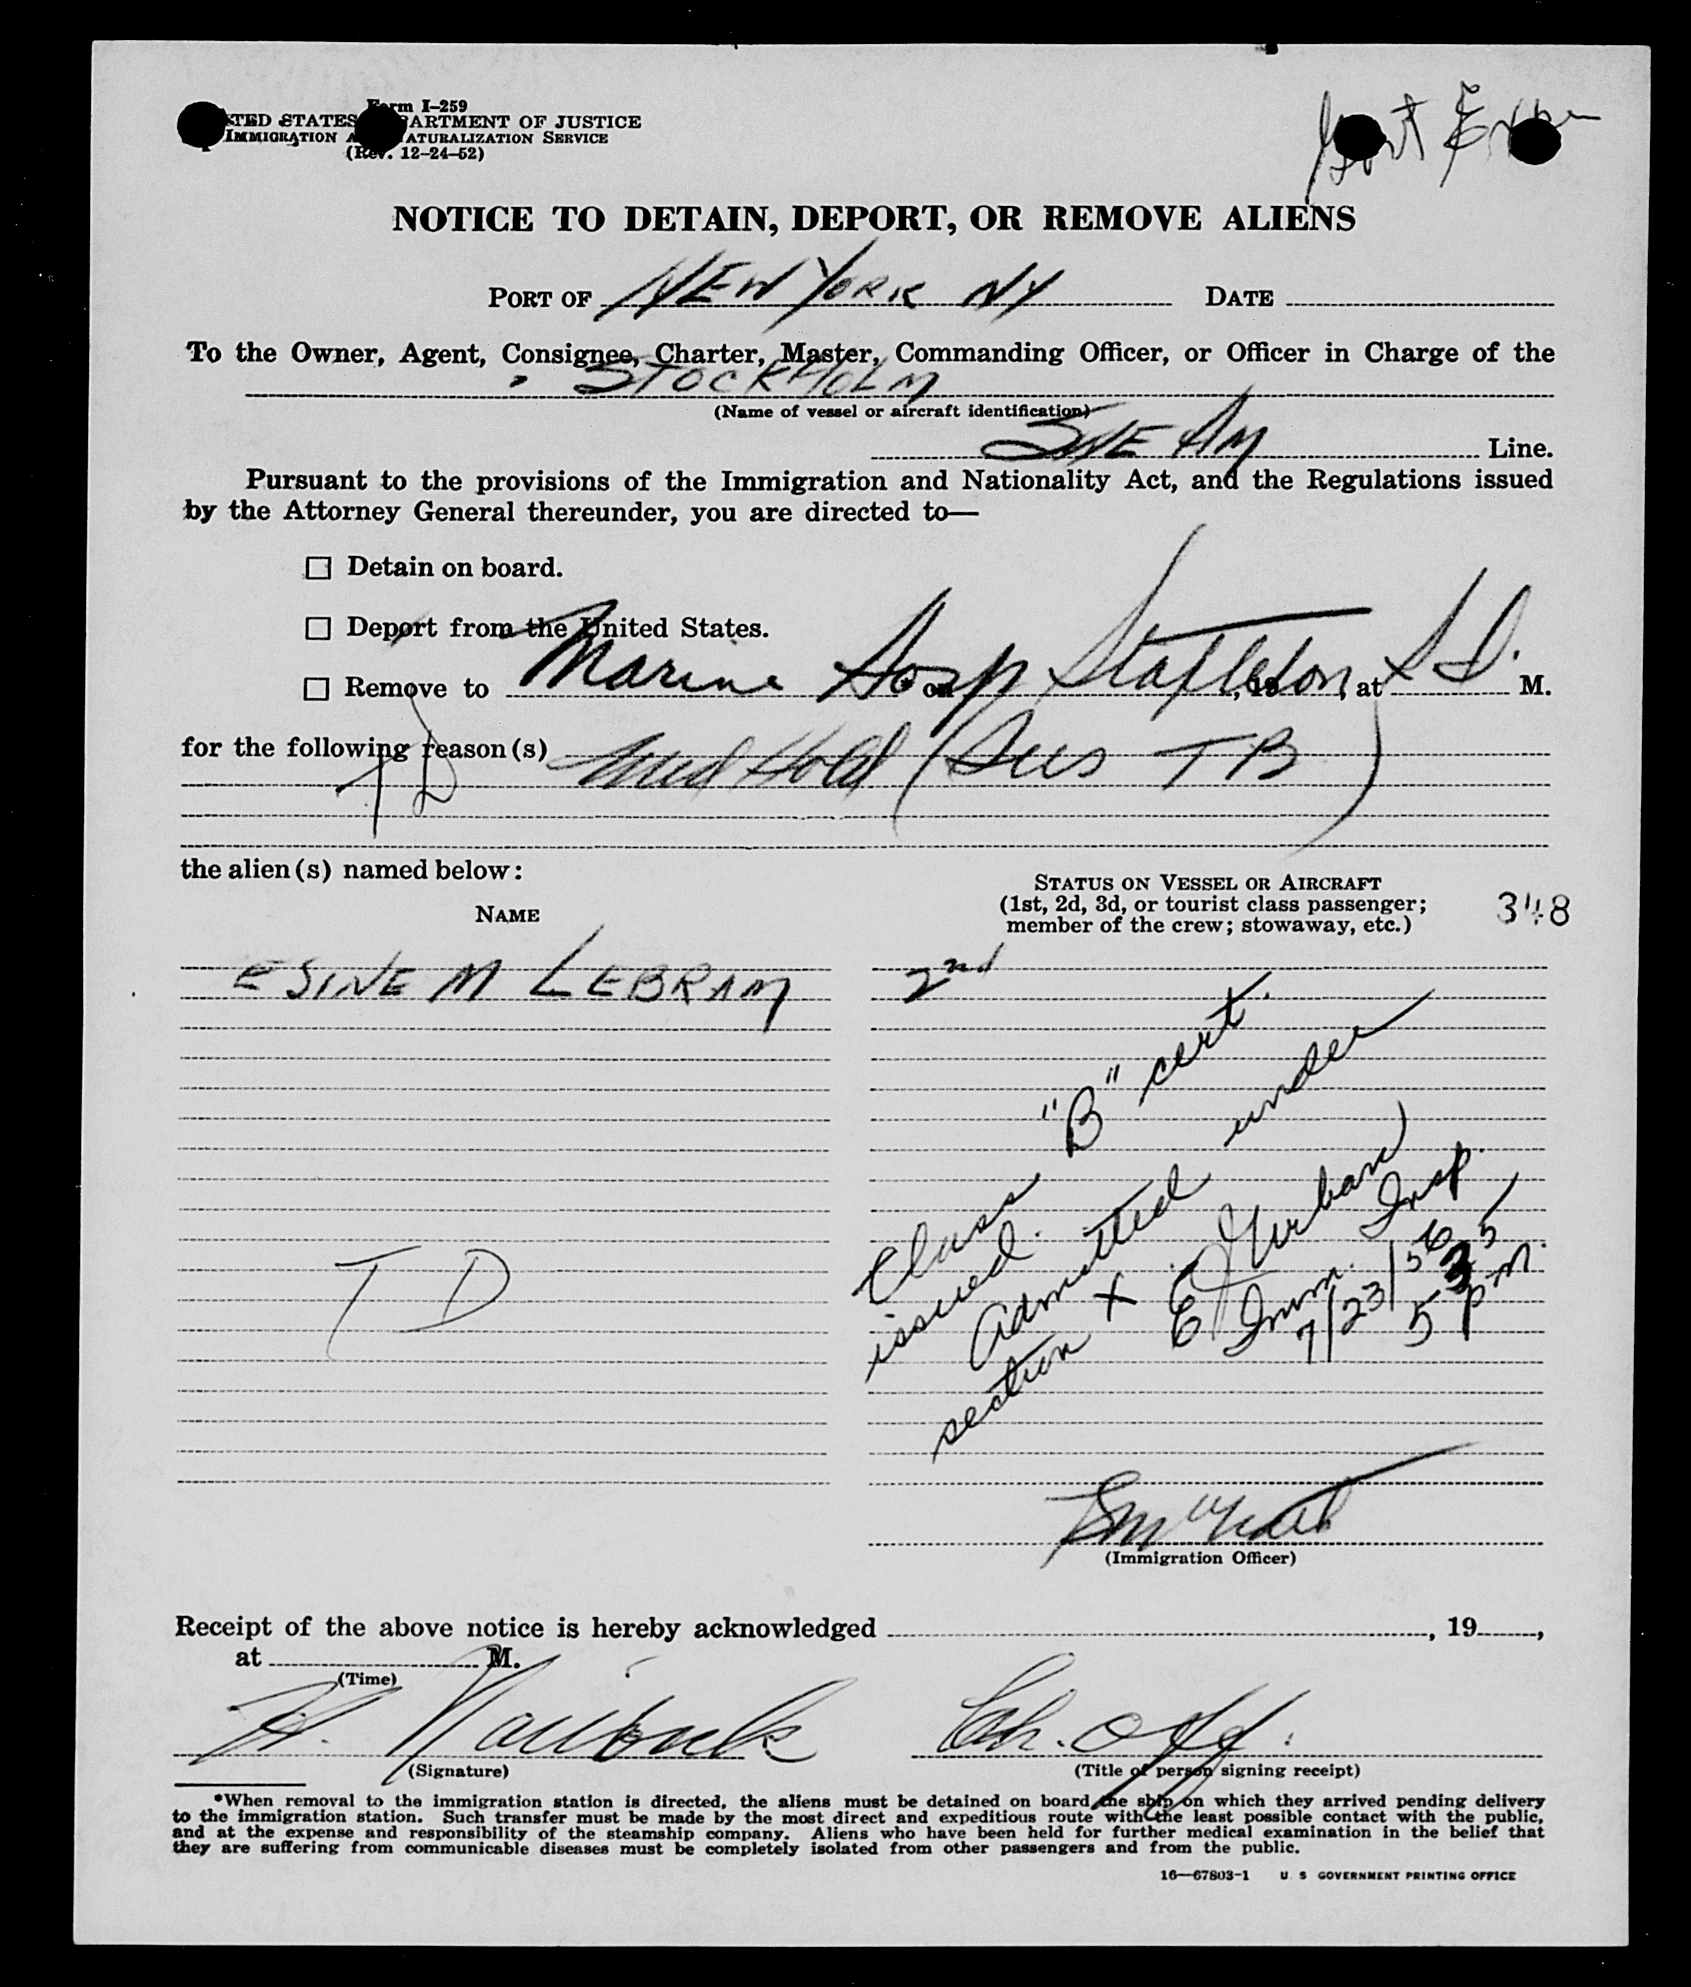 Form I-259
STATES DEPARTMENT OF JUSTICE
IMMIGRATION NATURALIZATION SERVICE
(Rev. 12-24-52)
Gov't
NOTICE TO DETAIN, DEPORT, OR REMOVE ALIENS
PORT OF NEW YORK NY DATE
To the Owner, Agent, Consignee, Charter, Master, Commanding Officer, or Officer in Charge of the
STOCKHOLM
(Name of vessel or aircraft identification)
SWE AM Line.
Pursuant to the provisions of the Immigration and Nationality Act, and the Regulations issued
by the Attorney General thereunder, you are directed to—
☐ Detain on board.
☐ Deport from the United States.
☐ Remove to Marine Hosp Stapleton, S I. * on , 19 , at M.
for the following reason(s) Med Hold (Sus TB)
TD
the alien(s) named below:
STATUS ON VESSEL OR AIRCRAFT
(1st, 2d, 3d, or tourist class passenger;
member of the crew; stowaway, etc.)
348
NAME
ESINE M LEBRAM 2nd
Class "B" cert.
issued.
Admitted under
section X
E J Urban
Imm. Insp.
7/23/56
5 35 pm.
TD
(Immigration Officer)
Receipt of the above notice is hereby acknowledged , 19 ,
at M.
(Time)
H. Ch. Off.
(Signature) (Title of person signing receipt)
*When removal to the immigration station is directed, the aliens must be detained on board the ship on which they arrived pending delivery
to the immigration station. Such transfer must be made by the most direct and expeditious route with the least possible contact with the public,
and at the expense and responsibility of the steamship company. Aliens who have been held for further medical examination in the belief that
they are suffering from communicable diseases must be completely isolated from other passengers and from the public.
16—67803-1 U S GOVERNMENT PRINTING OFFICE